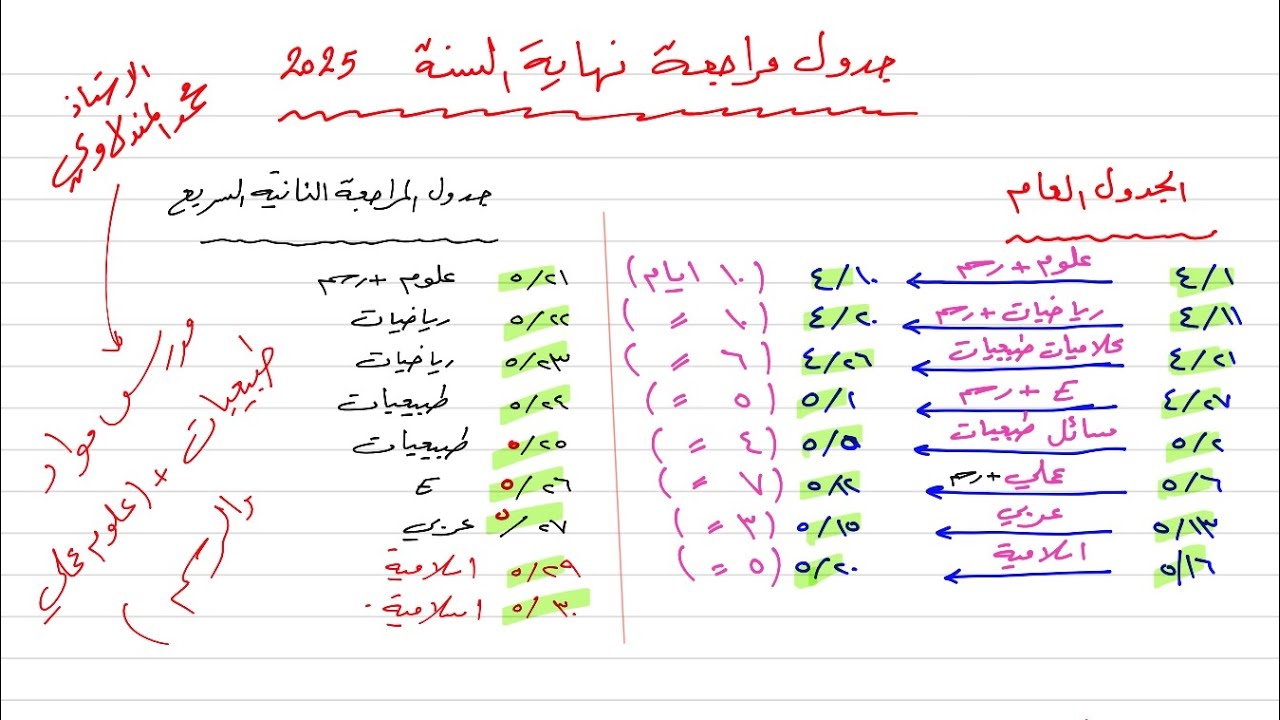 جدول مراجعة نهاية السنة 2025
الاستاذ
محمد الهندلاوي
الجدول العام
٤/١ علوم + رسم ٤/١٠ (١٠ ايام)
٤/١١ رياضيات + رسم ٤/٢٠ (١٠ =)
٤/٢١ كلاميات طبيعيات ٤/٢٦ (٦ =)
٤/٢٧ E + رسم ٥/١ (٥ =)
٥/٢ مسائل طبيعيات ٥/٥ (٤ =)
٥/٦ عملي + رسم ٥/١٢ (٧ =)
٥/١٣ عربي ٥/١٥ (٣ =)
٥/١٦ اسلامية ٥/٢٠ (٥ =)
جدول المراجعة الثانية السريع
٥/٢١ علوم + رسم
٥/٢٢ رياضيات
٥/٢٣ رياضيات
٥/٢٤ طبيعيات
٥/٢٥ طبيعيات
٥/٢٦ E
٥/٢٧ عربي
٥/٢٩ اسلامية
٥/٣٠ اسلامية
مدرس مواد
طبيعيات + (علوم عملي
والرسم)